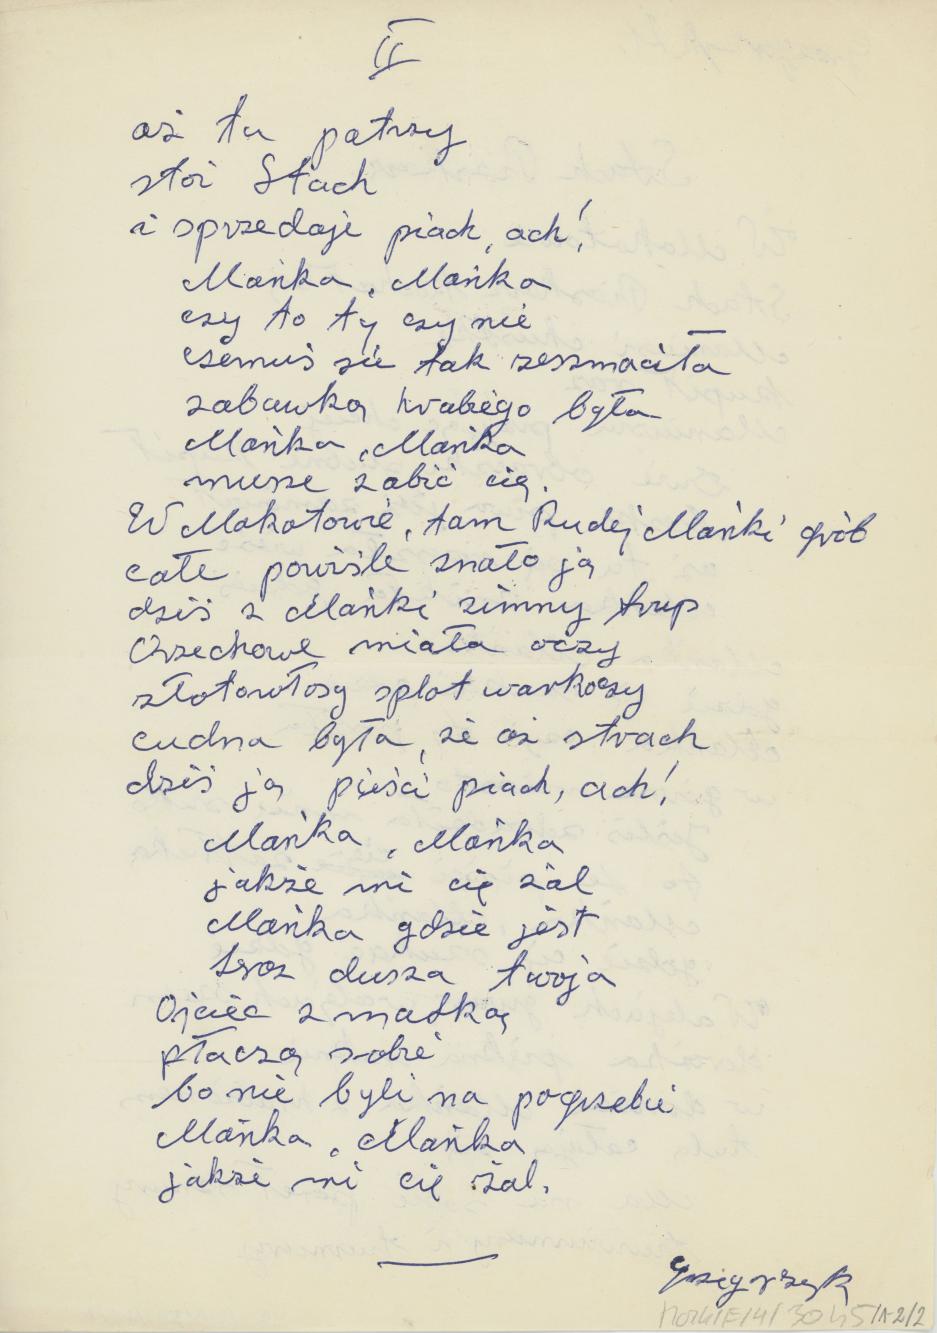 II
aż tu patrzy
stoi Stach
i sprzedaje piach, ach!
Mańka, Mańka
czy to ty czy nie
czemuś sie tak zeszmaciła
zabawką hrabiego była
Mańka, Mańka
musze zabić cię.
W Mokotowie, tam Rudej Mańki grób
całe powiśle znało ją
dziś z Mańki zimny trup
Orzechowe miała oczy
złotowłosy splot warkoczy
cudna była, że aż strach
dziś ją pieści piach, ach!
Mańka, Mańka
jakże mi cię żal
Mańka gdzie jest
teraz dusza twoja
Ojciec z matką
płaczą sobie
bo nie byli na pogrzebie
Mańka, Mańka
jakże mi cię żal.
Grzegorzyk